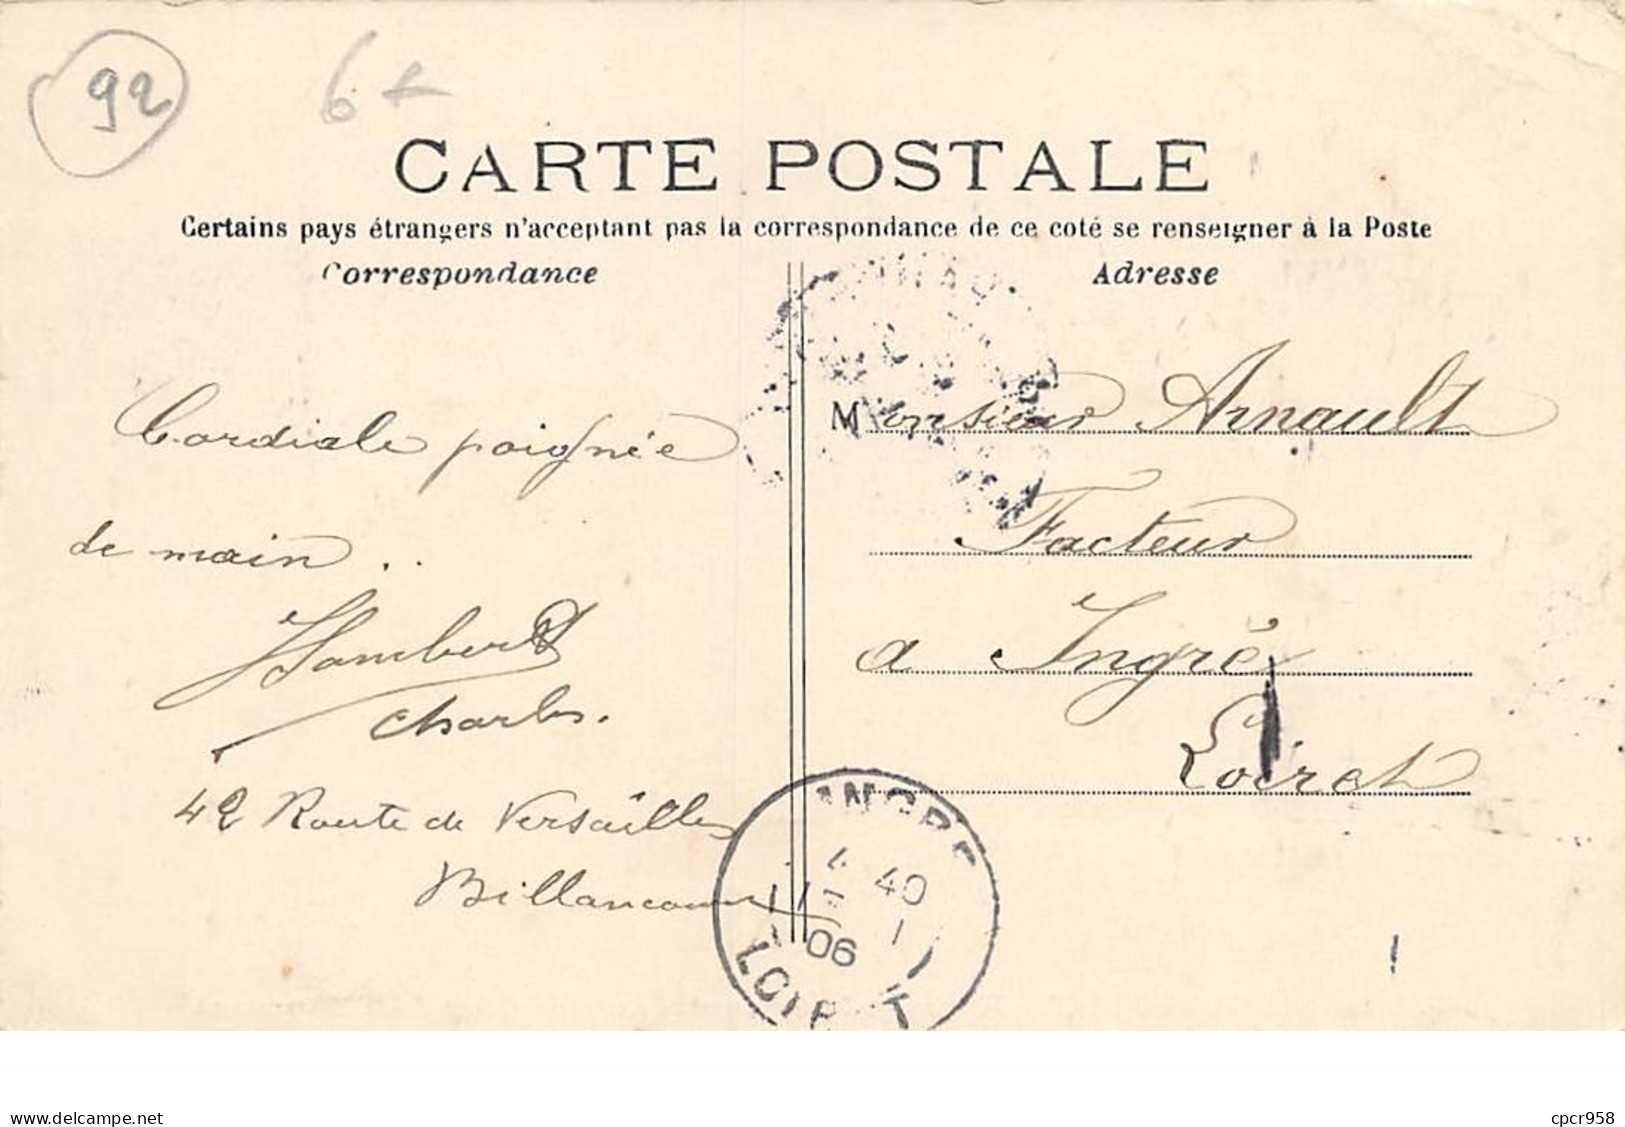 92
6€
CARTE POSTALE
Certains pays étrangers n'acceptant pas la correspondance de ce coté se renseigner à la Poste
Correspondance
Adresse
Cordiale poignée
de main..
Lambert
Charles.
42 Route de Versailles
Billancourt
Monsieur Arnault
Facteur
a Ingré
Loiret
INGRE
4 40
1
06
LOIRET
delcampe.net
cpcr958